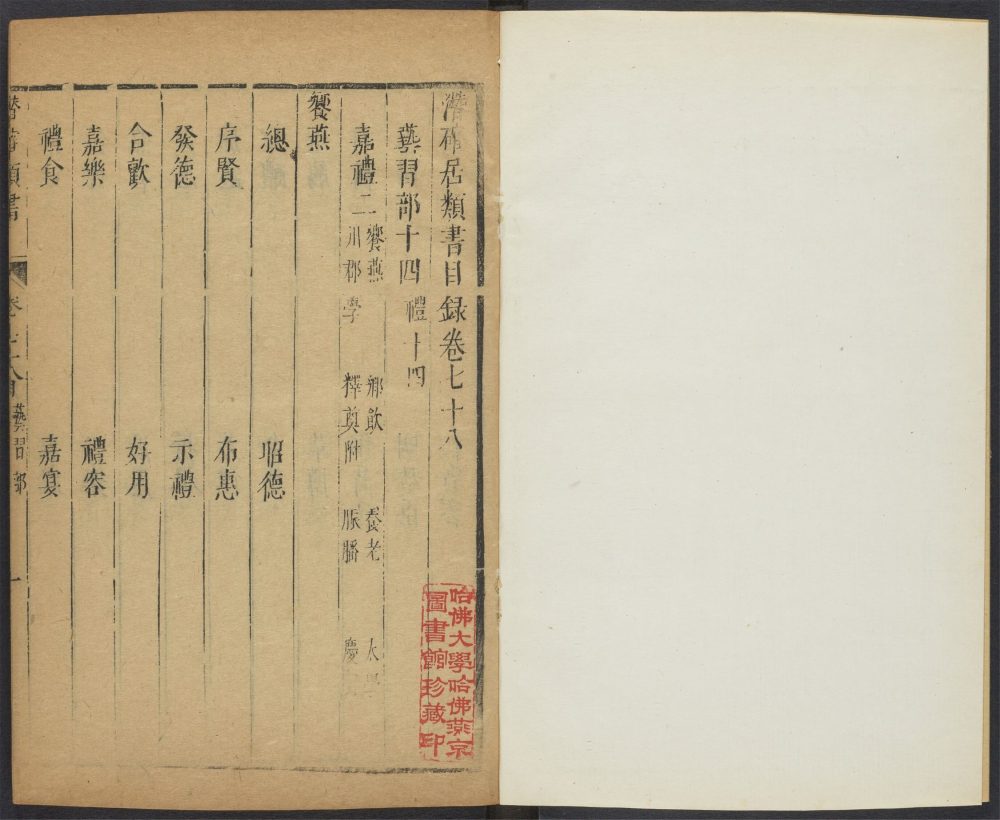 潛確居類書目録卷七十八
藝習部十四 禮十四
嘉禮二 饗燕 鄉飲 養老 大學
州郡學 釋奠附 脤膰 慶
饗燕
總 昭德
序賢 布惠
發德 示禮
合歡 好用
嘉樂 禮容
禮食 嘉宴
潛確類書 卷七十八目 藝習部 一
哈佛大學哈佛燕京
圖書館珍藏印